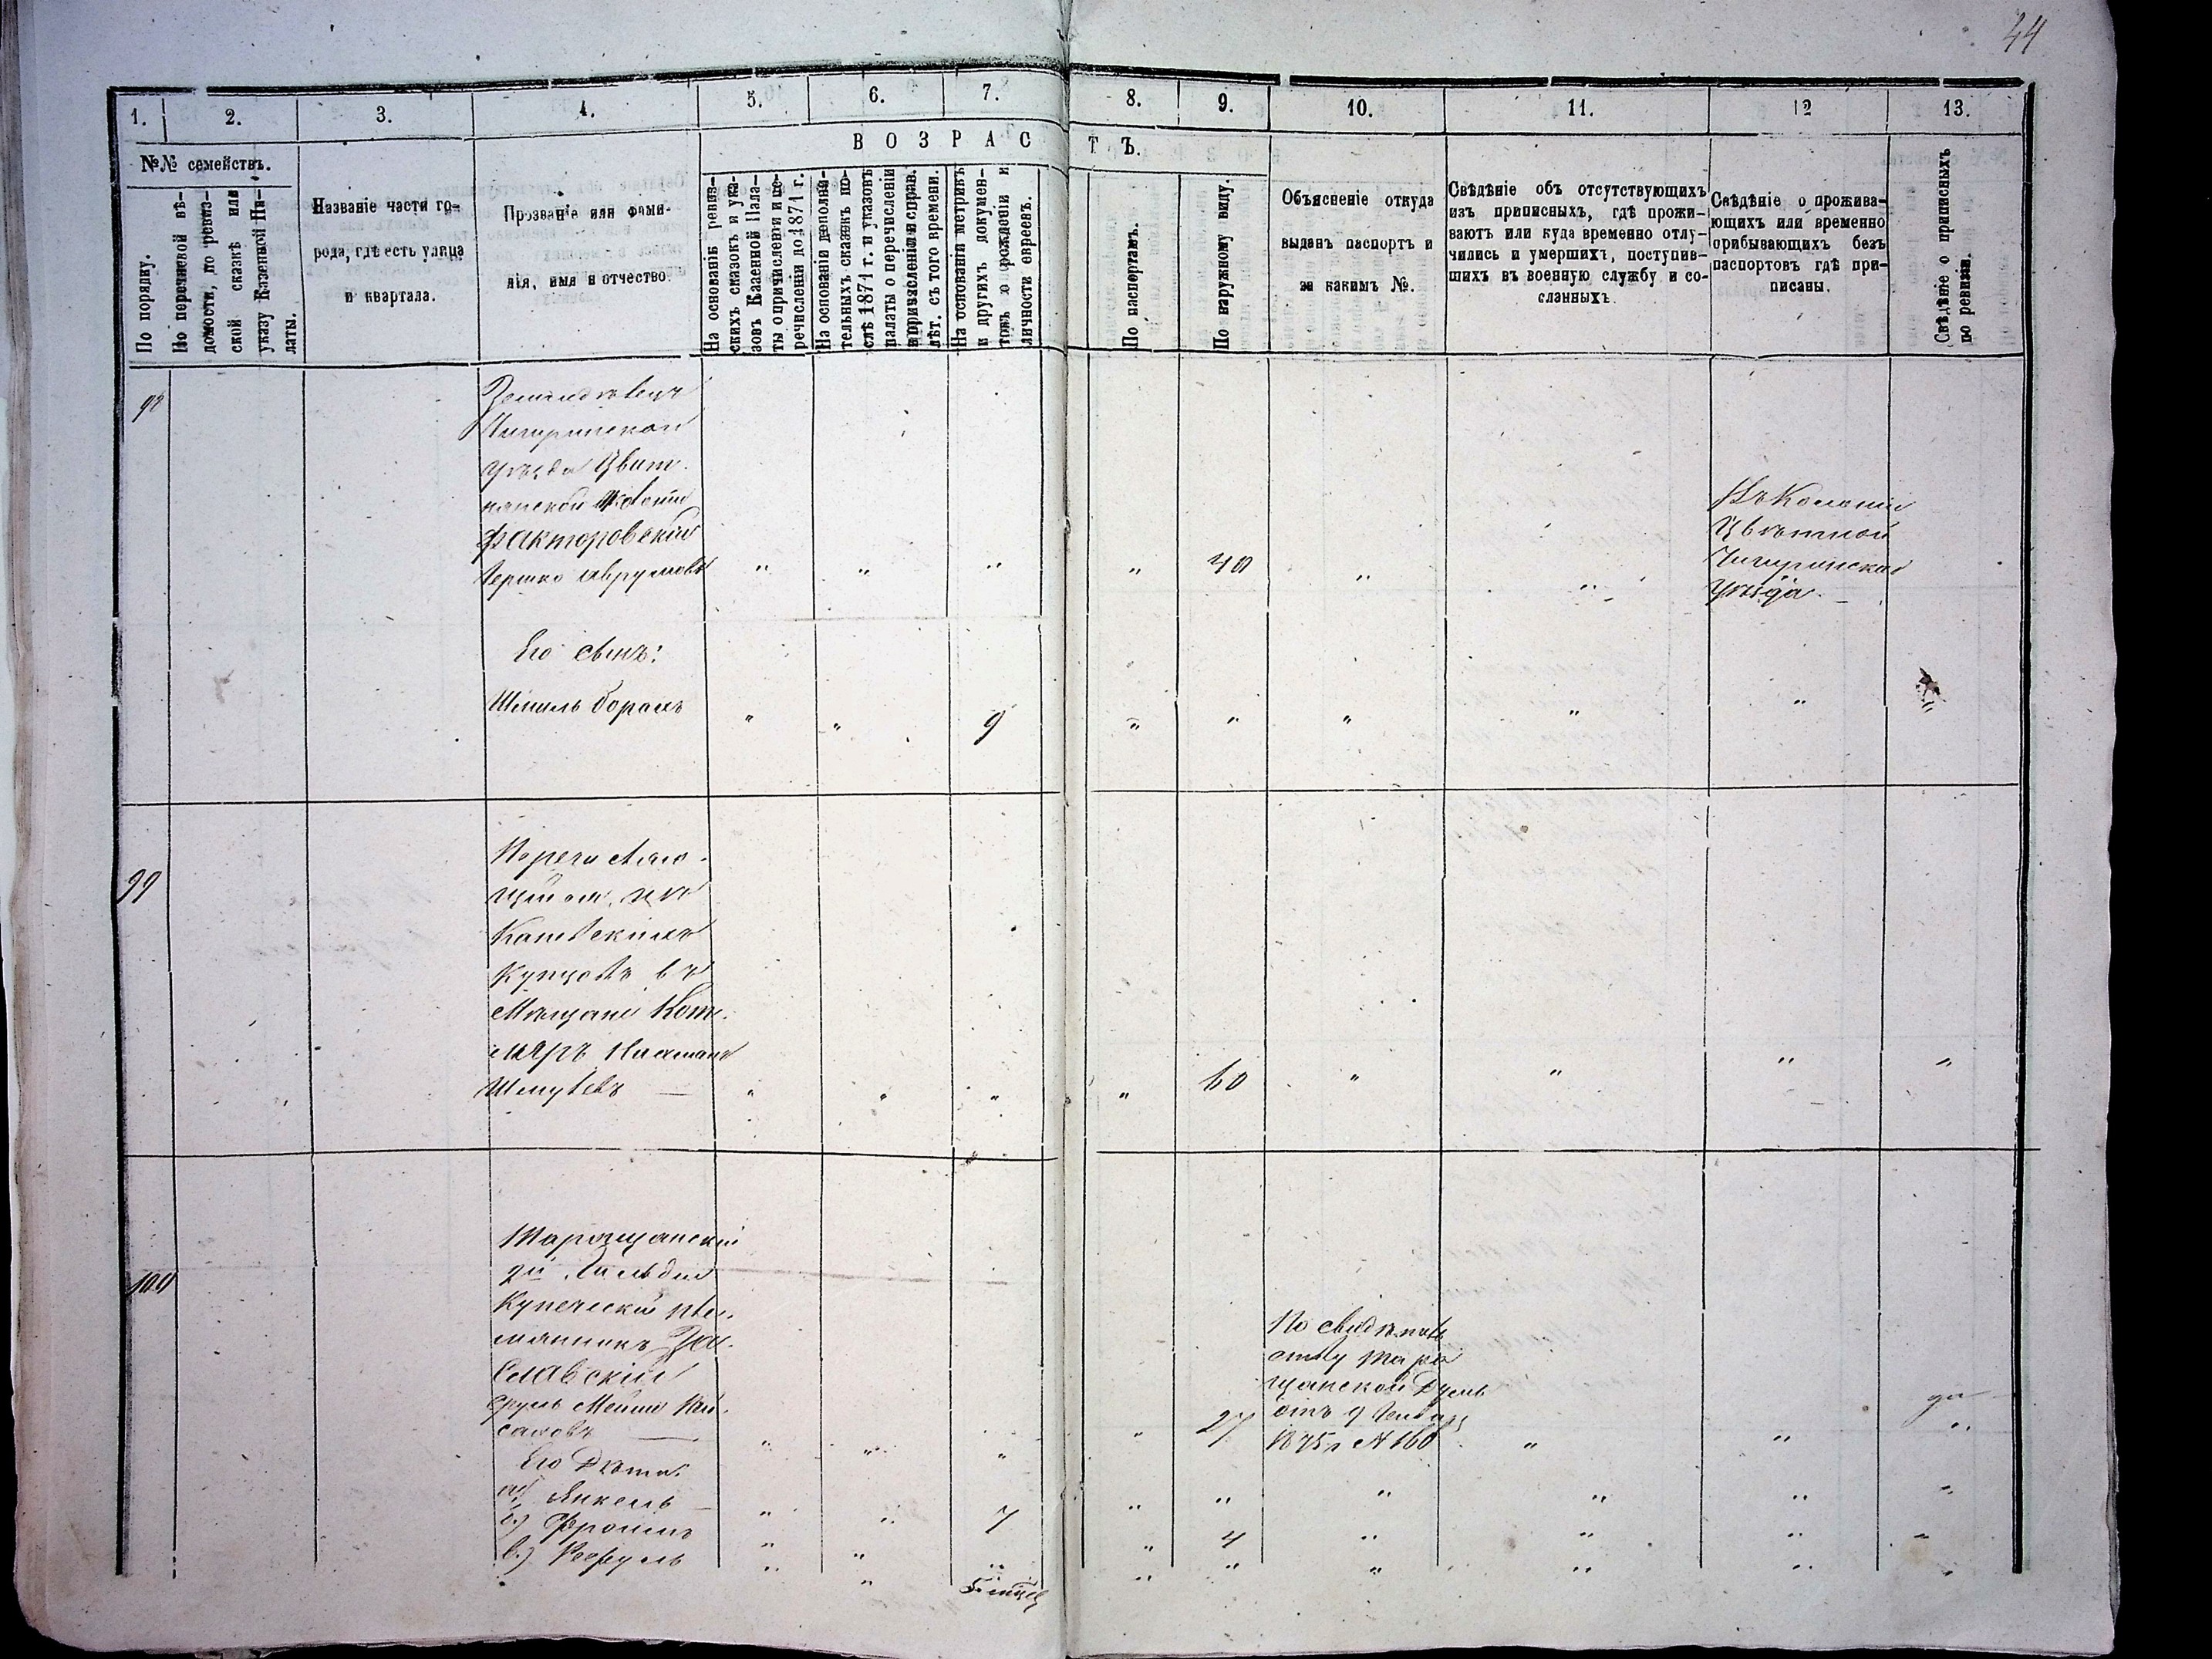 44
1. 2. 3. 4. 5. 6. 7. 8. 9. 10. 11. 12 13.
В О З Р А С Т Ъ.
№№ семействъ.
По порядку.
По перечневой вѣ-
домости, по ревиз-
ской сказкѣ или
указу Казенной Па-
латы.
Названіе части го-
рода, гдѣ есть улица
и квартала.
Прозваніе или фами-
лія, имя и отчество.
На основаніи ревиз-
скихъ сказокъ и ука-
зовъ Казенной Пала-
ты о причисленіи и пе-
речисленіи до 1871 г.
На основаніи дополни-
тельныхъ сказокъ по-
слѣ 1871 г. и указовъ
палаты о перечисленіи
и причисленіи и справ.
лѣт. съ того времени.
На основаніи метрикъ
и другихъ докумен-
товъ о рожденіи и
личности евреевъ.
По паспортамъ.
По наружному виду.
Объясненіе откуда
выданъ паспортъ и
за какимъ №.
Свѣдѣніе объ отсутствующихъ
изъ приписныхъ, гдѣ прожи-
ваютъ или куда временно отлу-
чились и умершихъ, поступив-
шихъ въ военную службу и со-
сланныхъ.
Свѣдѣніе о прожива-
ющихъ или временно
прибывающихъ безъ
паспортовъ гдѣ при-
писаны.
Свѣдѣніе о приписныхъ
по ревизіи.
98
Земледѣлецъ
Чигиринскаго
уѣзда Цвит-
нянской
Факторовскій
Гершко Аврумовъ " " " " 40 " "
Въ Колоніи
Цвѣтной
Чигиринскаго
уѣзда.
Его сынъ:
Шмиль Борахъ " " 9 " " " " " "
99
Перечисляю-
щійся изъ
Каневскихъ
Купцовъ въ
Мѣщане Кот-
ляръ Нахманъ
Шмулевъ " " " " 60 " " " "
100
Таращанскій
2й Гильдіи
Купеческій пле-
мянникъ За-
славскій
Сруль Мейше Кей-
саховъ " " " " 27
По свидѣтель
ству Тара
щанской Думы
отъ 9 Генваря
1875 г № 160 " " "
Его Дѣти:
а) Янкель " " 7 " " " " " "
б.) Фроимъ " " " " 4 " " " "
в.) Рафуль " " 5 мѣсяц " " " " " "